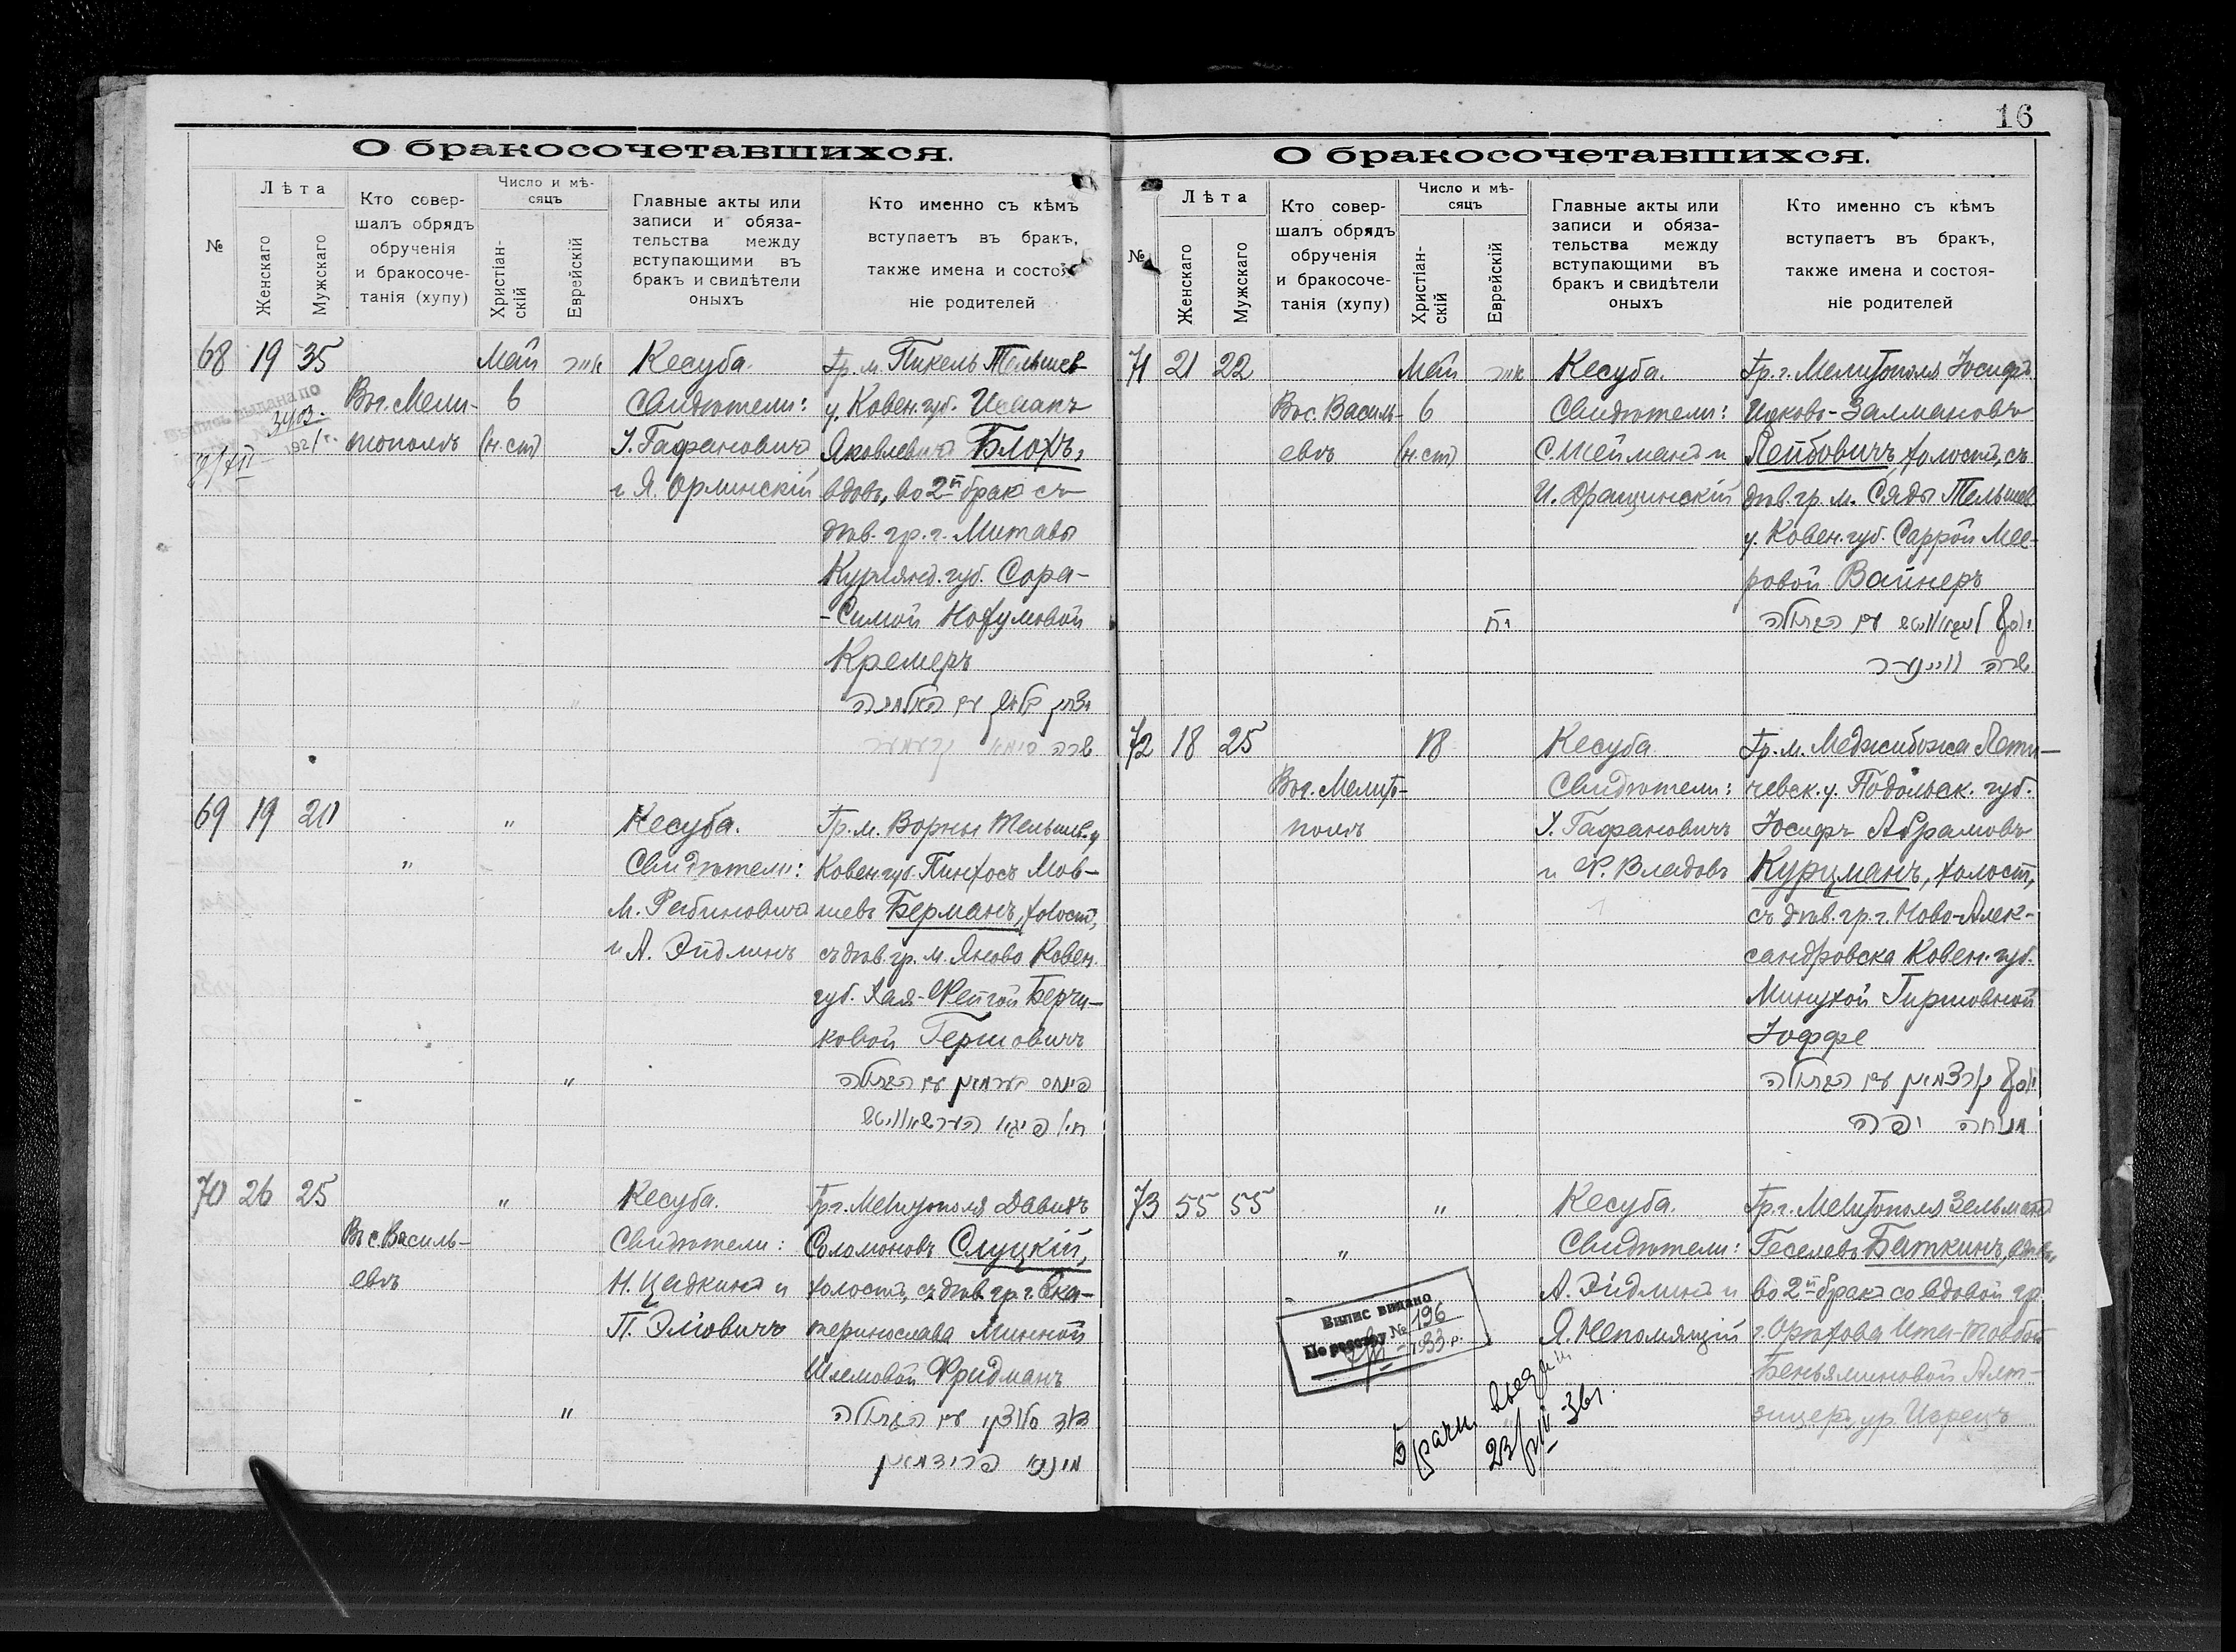 О бракосочетавшихся.
№
Лѣта
Женскаго
Мужскаго
Кто совер-
шалъ обрядъ
обрученія
и бракосоче-
танія (хупу)
Число и мѣ-
сяцъ
Христіан-
скій
Еврейскій
Главные акты или
записи и обяза-
тельства между
вступающими въ
бракъ и свидѣтели
оныхъ
Кто именно съ кѣмъ
вступаетъ въ бракъ,
также имена и состоя
ніе родителей
68 19 35
Выпись выдана по
3403
1921 г.
Вог. Мели-
тополь
Май
6
(н. ст)
Кесуба.
Свидѣтели:
І. Гафановичъ
и Я. Орлинскій
Гр. м. Пикель Тельшев
у. Ковен. губ. Исаакъ
Яковлевичъ Блохъ,
вдовъ, во 2й бракъ съ
дѣв. гр. г. Митавы
Курлянд. губ. Сора-
-Симой Нохумовой
Кремеръ
69 19 20
"
"
Кесуба.
Свидѣтели:
М. Рабиновичъ
и А. Эйдлинъ
Гр. м. Ворны Тельшев. у
Ковен губ. Пинхосъ Мов-
шевъ Берманъ, холост,
съ дѣв. гр. м. Яново Ковен.
губ. Хая-Фейгой Берчи-
ковой Гершовичъ
"
70 26 25
Вос. Василь-
евъ
"
Кесуба.
Свидѣтели:
Н. Цадкинъ и
П. Эліовичъ
Гр. г. Мелитополя Давидъ
Соломоновъ Слуцкій,
холостъ, съ дѣв. гр. г. Ека-
теринослава Минной
Шлемовой Фридманъ
"
16
О бракосочетавшихся.
№
Лѣта
Женскаго
Мужскаго
Кто совер-
шалъ обрядъ
обрученія
и бракосоче-
танія (хупу)
Число и мѣ-
сяцъ
Христіан-
скій
Еврейскій
Главные акты или
записи и обяза-
тельства между
вступающими въ
бракъ и свидѣтели
оныхъ
Кто именно съ кѣмъ
вступаетъ въ бракъ,
также имена и состоя-
ніе родителей
71 21 22
Вос. Василь-
евъ
Май
6
(н. ст)
Кесуба.
Свидѣтели:
С. Шейманъ и
Гр. г. Мелитополя Іосифъ
Ицковъ-Залмановъ
Лейбовичъ, холостъ, съ
дѣв. гр. м. Сяды Тельшев
у. Ковен. губ. Саррой Мее-
ровой Вайнеръ
יח
שרה וויינער
72 18 25
Вог. Мелито-
поль
18
Кесуба
Свидѣтели:
І. Гафановичъ
и Ф. Владовъ
Гр. м. Меджибожа Лети-
чевск. у. Подольск. губ.
Іосифъ Абрамовъ
Курцманъ, холост,
съ дѣв. гр. г. Ново-Алек-
сандровска Ковен. губ.
Минухой Гиршовной
Іоффе
מנוחה יפה
73 55 55
"
"
Кесуба.
Свидѣтели:
А. Эйдлинъ и
Я. Непомящій
Гр. г. Мелитополя Зельманъ
Геселевъ Баткинъ, вдовъ,
во 2й бракъ со вдовой гр
г. Орѣхова Ита-Товбой
Беньяминовой Альт-
Випис видано
По реєстру № 196
1933 р.